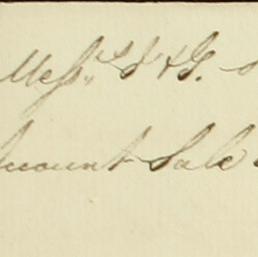 Messrs I & G.
Account Sale